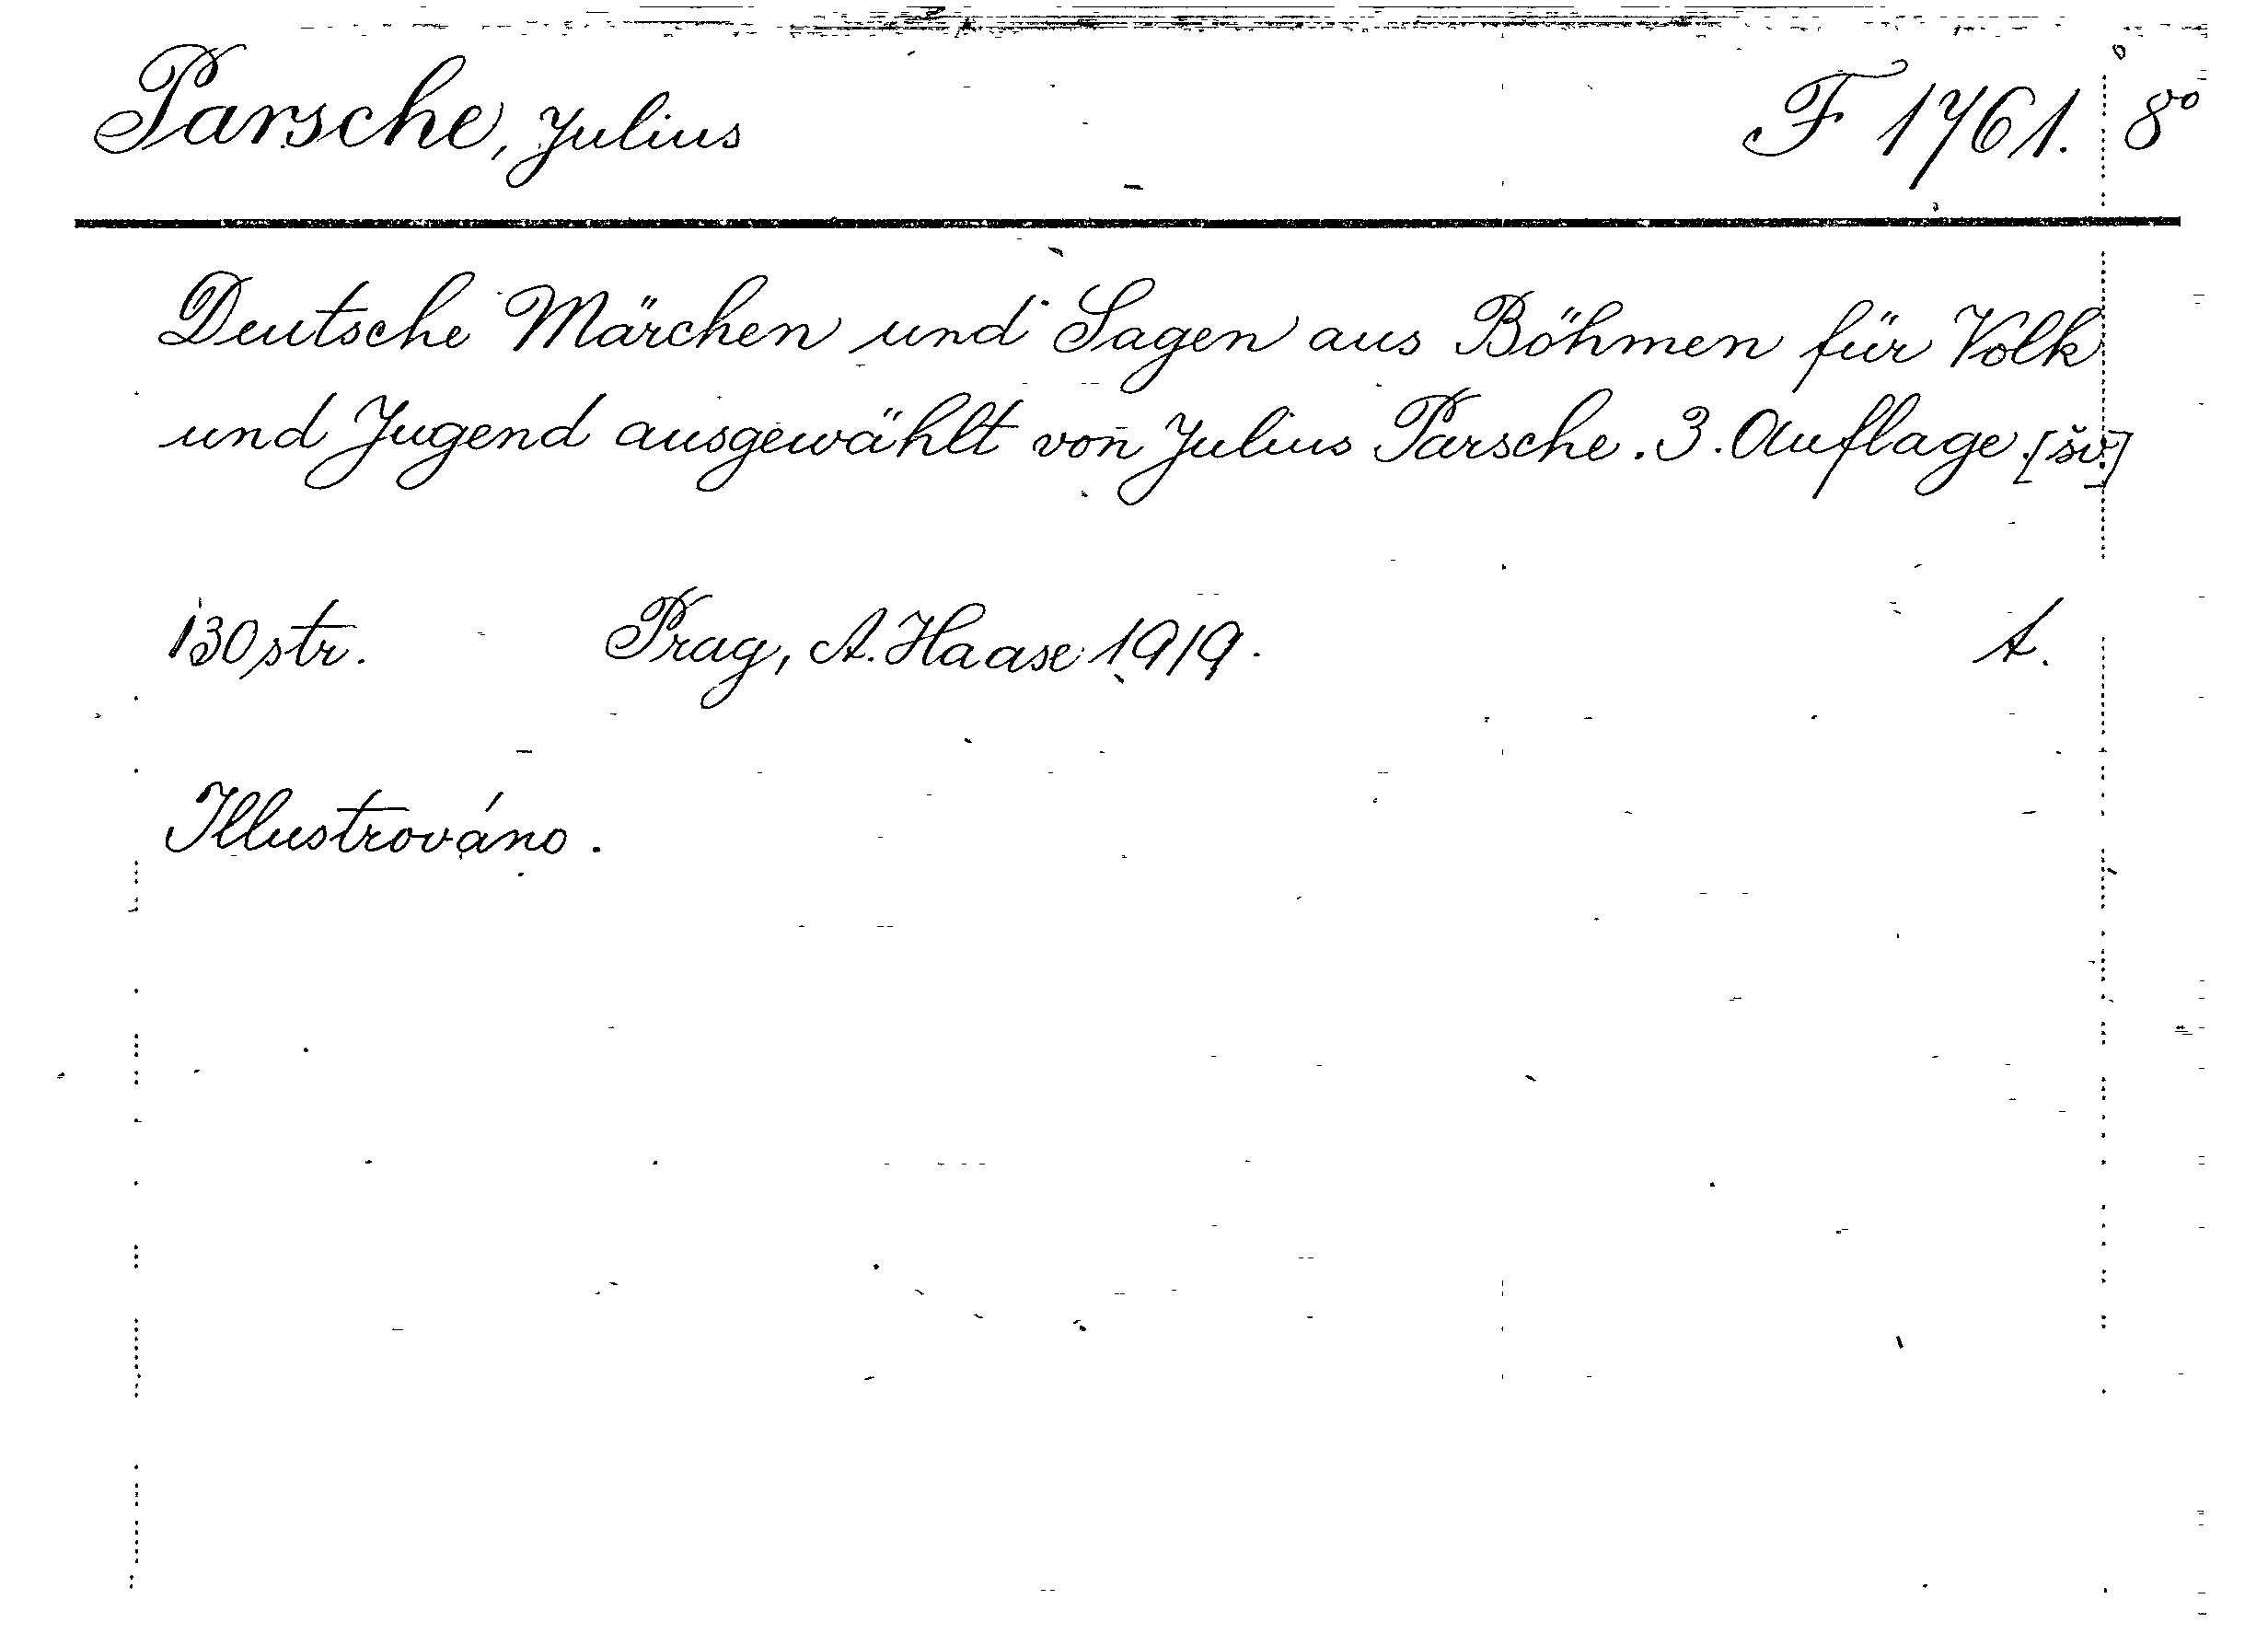 Parsche, Julius F 1761. 8°
Deutsche Märchen und Sagen aus Böhmen für Volk
und Jugend ausgewählt von Julius Parsche. 3. Auflage. [šv.]
130 str. Prag, A. Haase 1919. A.
Illustrováno.